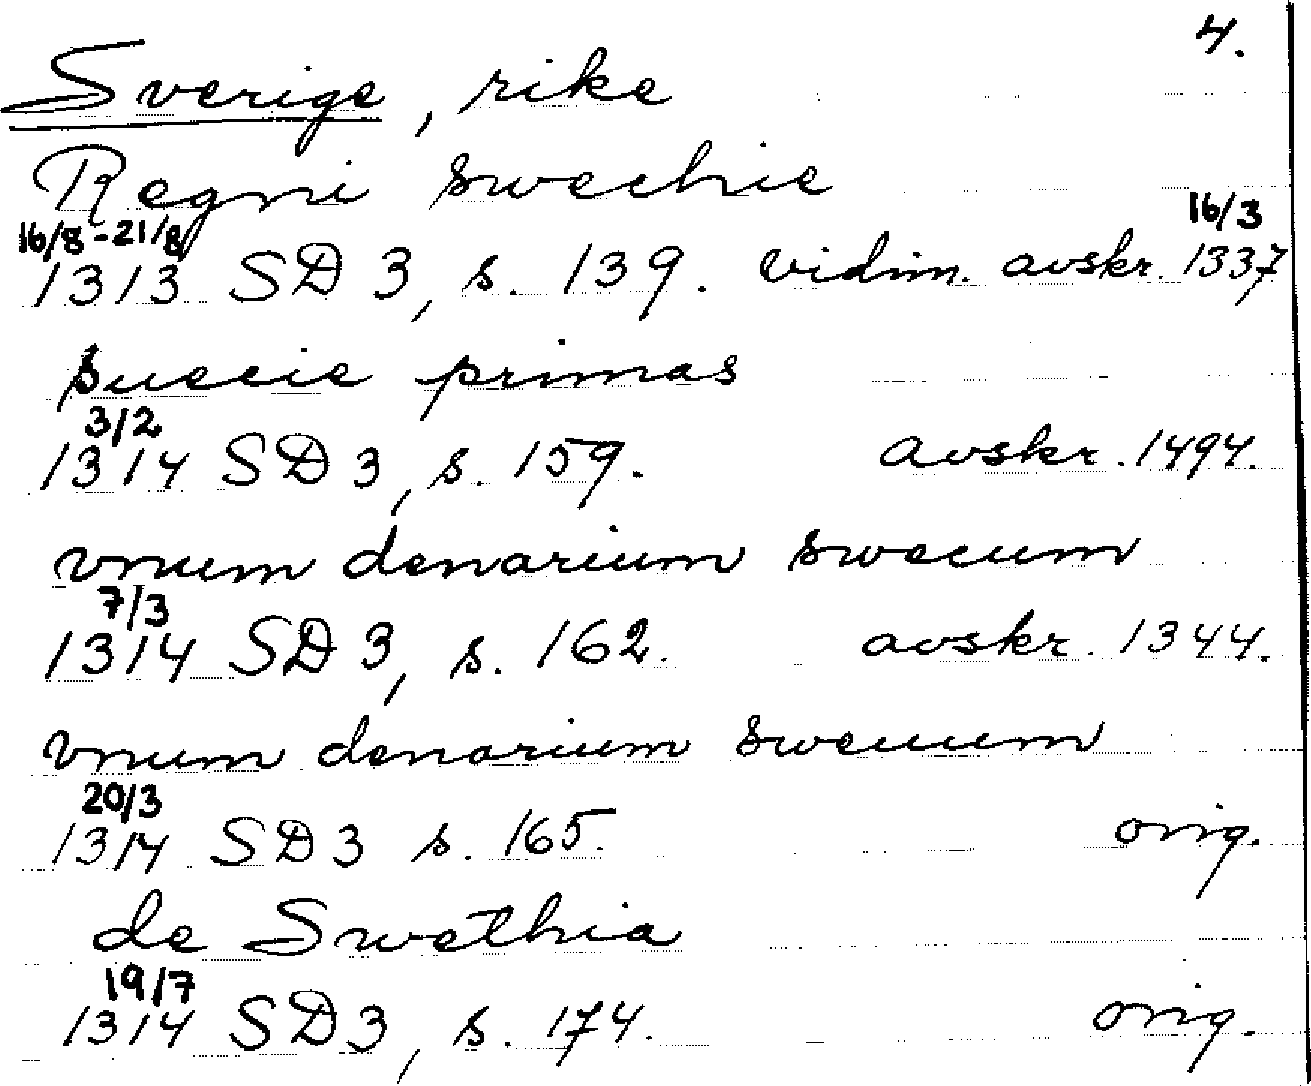 4.
Sverige, rike
Regni swechie
16/8-21/8 16/3
1313 SD 3, s. 139. vidim. avskr. 1337
suecie primas
3/2
1314 SD 3, s. 159. avskr. 1494.
vnum denarium swecum
7/3
1314 SD 3, s. 162. avskr. 1344.
vnum denarium swecum
20/3
1314 SD 3 s. 165. orig.
de Swethia
19/7
1314 SD 3, s. 174. orig.